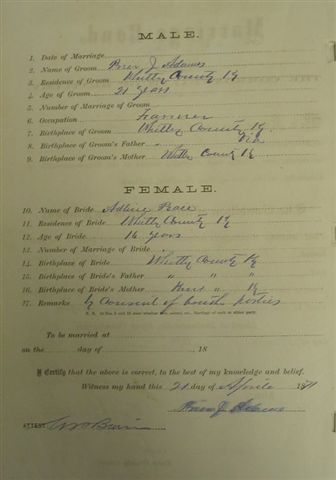 MALE.
1. Date of Marriage
2. Name of Groom J Adams
3. Residence of Groom Whitley County Ky
4. Age of Groom 21 years
5. Number of Marriage of Groom
6. Occupation Farmer
7. Birthplace of Groom Whitley County Ky
8. Birthplace of Groom's Father "
9. Birthplace of Groom's Mother Whitley County Ky
FEMALE.
10. Name of Bride
11. Residence of Bride Whitley County Ky
12. Age of Bride 16 years
13. Number of Marriage of Bride
14. Birthplace of Bride Whitley County Ky
15. Birthplace of Bride's Father " " "
16. Birthplace of Bride's Mother " Ky
17. Remarks by Consent of parties
To be married at
on the day of 18
I Certify that the above is correct, to the best of my knowledge and belief.
Witness my hand this 21 day of 1871
J Adams
ATTEST